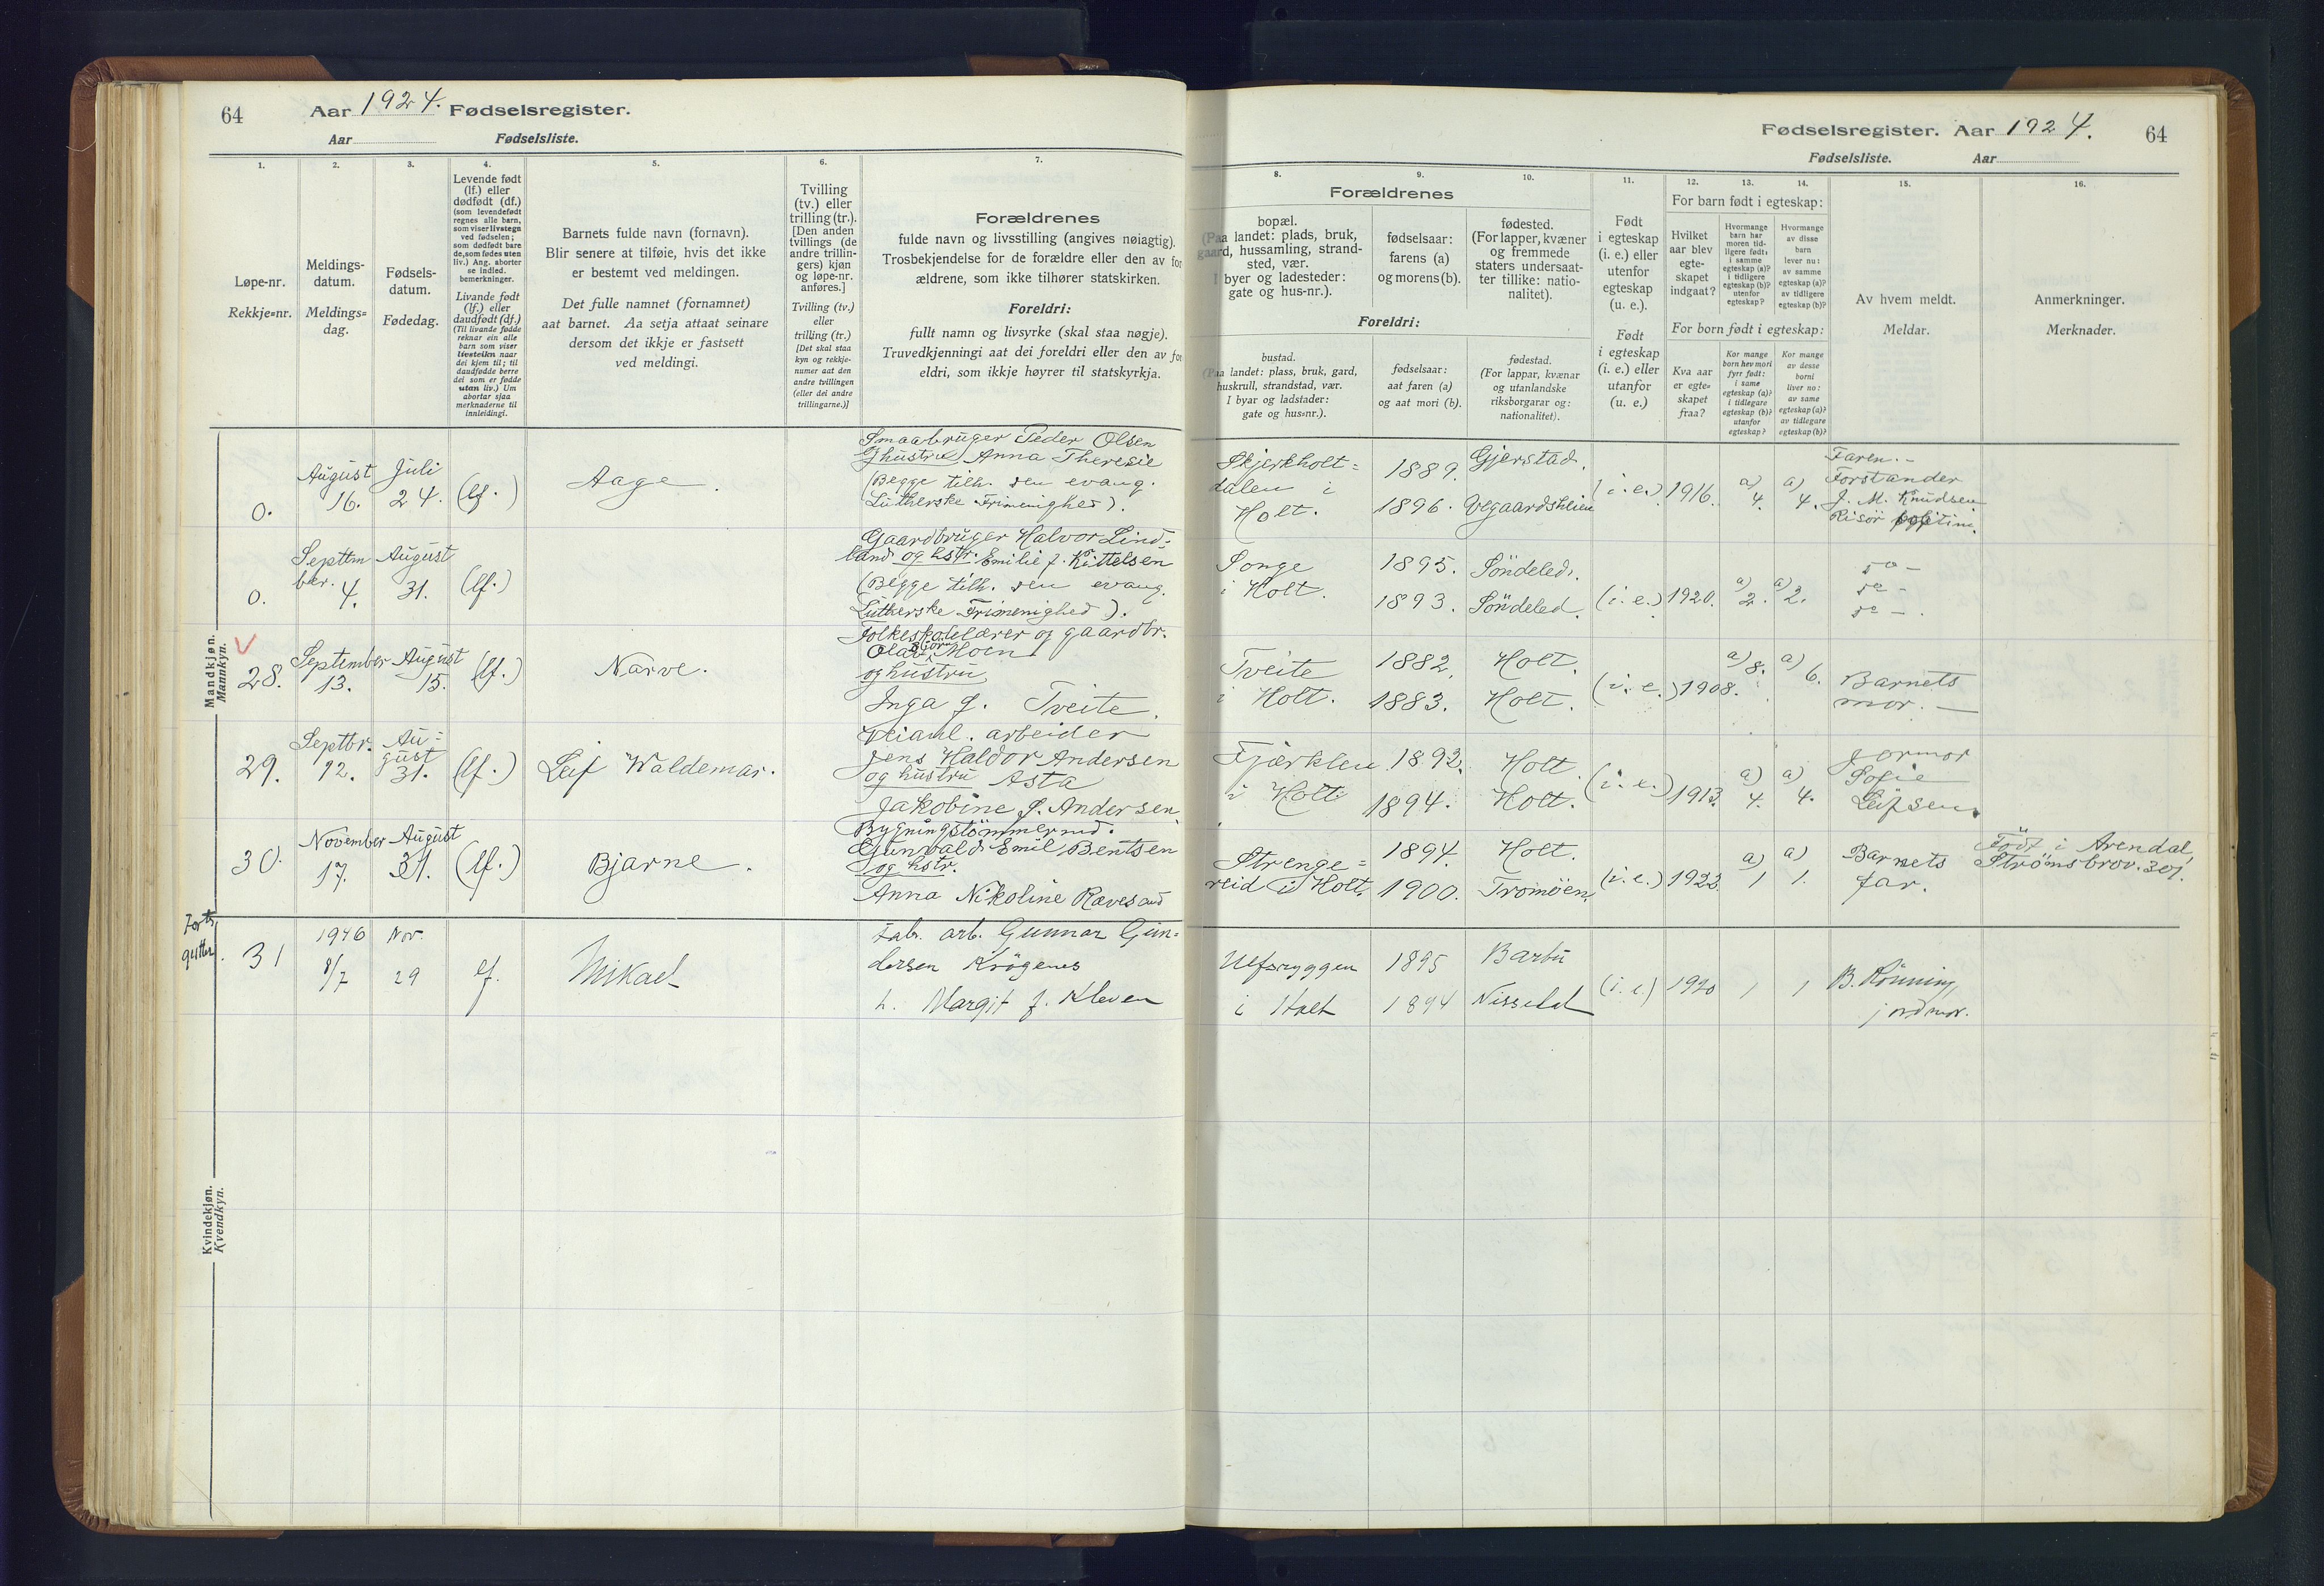 64
Aar 1924. Fødselsregister.
Aar Fødselsliste.
1.
2.
3.
4.
5.
6.
7.
Løpe-nr.
Rekkje=nr.
Meldings-
datum.
Meldings=
dag.
Fødsels-
datum.
Fødedag.
Levende født
(lf.) eller
dødfødt (df.)
(som levendefødt
regnes alle barn,
som viser livstegn
ved fødselen;
som dødfødt bare
de, som fødes uten
liv.) Ang. aborter
se indled.
bemerkninger.
Livande født
(lf.) eller
daudfødt (df.)
(Til livande fødde
reknar ein alle
barn som viser
livsteikn naar
dei kjem til; til
daudfødde berre
dei som er fødde
utan liv.) Um
abortar sjaa
merknaderne til
innleidingi.
Barnets fulde navn (fornavn).
Blir senere at tilføie, hvis det ikke
er bestemt ved meldingen.
Det fulle namnet (fornamnet)
aat barnet. Aa setja attaat seinare
dersom det ikkje er fastsett
ved meldingi.
Tvilling
(tv.) eller
trilling (tr.).
[Den anden
tvillings (de
andre trillin-
gers) kjøn
og løpe-nr.
anføres.]
Tvilling (tv.)
eller
trilling (tr.)
[Det skal staa
kyn og rekkje-
numer aat den
andre tvillingen
(eller dei andre
trillingarne.)]
Forældrenes
fulde navn og livsstilling (angives nøiagtig).
Trosbekjendelse for de forældre eller den av for
ældrene, som ikke tilhører statskirken.
Foreldri:
fullt namn og livsyrke (skal staa nøgje).
Truvedkjenningi aat dei foreldri eller den av for
eldri, som ikkje høyrer til statskyrkja.
Mandkjøn.
Mannkyn.
0.
August
16.
Juli
24.
(lf.)
Aage.
Smaabruger Peder Olsen
og hustru Anna Theresie
(Begge tilh. den evang.
Lutherske Frimenighed).
0.
Septem
ber. 4.
August
31.
(lf.)
Gaardbruger Halvor Lind-
land og hstr. Emilie f. Kittelsen
(Begge tilh. den evang.
Lutherske Frimenighed).
V
28.
September
13.
August
15.
(lf.)
Narve.
Folkeskolelærer og gaardbr.
Olav Moen
og hustru
Inga f. Tveite.
29.
Septbr.
12.
Au-
gust
31.
(lf.)
Leif Waldemar.
Veianl. arbeider
Jens Haldor Andersen
og hustru Asta
Jakobine f. Andersen.
30.
November
17.
August
31.
(lf.)
Bjarne.
Bygningstömmermd.
Gunvald Emil Bentsen
og hstr.
Anna Nikoline Rævesand
Forts.
gutter.
31
1946
8/7
Nov.
29
lf.
Mikael
Fab. arb. Gunnar Gun-
dersen Krögenes
h. Margit f. Kleven
Kvindekjøn.
Kvendkyn.
Fødselsregister. Aar 1924.
64
Fødselsliste. Aar
8.
9.
10.
11.
12.
13.
14.
15.
16.
Forældrenes
bopæl.
(Paa landet: plads, bruk,
gaard, hussamling, strand-
sted, vær.
I byer og ladesteder:
gate og hus-nr.).
fødselsaar:
farens (a)
og morens (b).
fødested.
(For lapper, kvæner
og fremmede
staters undersaat-
ter tillike: natio-
nalitet).
Foreldri:
bustad.
(Paa landet: plass, bruk, gard,
huskrull, strandstad, vær.
I byar og ladstader:
gate og hus=nr.).
fødselsaar:
aat faren (a)
og aat mori (b).
fødestad.
(For lappar, kvænar
og utanlandske
riksborgarar og:
nationalitet).
Født
i egteskap
(i. e.) eller
utenfor
egteskap
(u. e.).
Født
i egteskap
(i. e.) eller
utanfor
(u. e.)
For barn født i egteskap:
Hvilket
aar blev
egte-
skapet
indgaat?
Hvormange
barn har
moren tid-
ligere født:
i samme
egteskap (a)?
i tidligere
egteskap (b)?
utenfor
egteskap?
Hvormange
av disse
barn
lever nu:
av samme
egteskap (a)?
av tidligere
egteskap (b)?
For born født i egteskap:
Kva aar
er egte=
skapet
fraa?
Kor mange
born hev mori
fyrr født:
i same
egteskap (a)?
i tidlegare
egteskap (b)?
utanfor
egteskap?
Kor mange
av desse
borni
liver no:
av same
egteskap (a)?
av tidlegare
egteskap (b)?
Av hvem meldt.
Meldar.
Anmerkninger.
Merknader.
Skjerkholt=
dalen i
Holt.
1889.
1896.
Gjerstad.
Vegaardsheien
(i. e.)
1916.
a)
4.
a)
4.
Faren.-
Forstander
J. M. Knudsen
Risör
Songe
i Holt.
1895.
1893.
Söndeled.
Söndeled.
(i. e.)
1920.
a)
2.
a)
2.
do -
do -
do -.
Tveite
i Holt.
1882.
1883.
Holt.
Holt.
(i. e.)
1908.
a) 8.
a) 6.
Barnets
mor. -
Fjærkleiv
i Holt.
1892.
1894.
Holt.
Holt.
(i. e.)
1913.
a)
4.
a)
4.
Jormor
Sofie
Leifsen.
Strenge=
reid i Holt.
1894.
1900.
Holt.
Tromöen.
(i. e.)
1922.
a)
1
a)
1.
Barnets
far.
Född i Arendal,
Strömsbrov. 301.
i Holt
1895
1894
Barbu
Nissedal
(i. e.)
1920
1
1
B. Rönning,
jordmor.